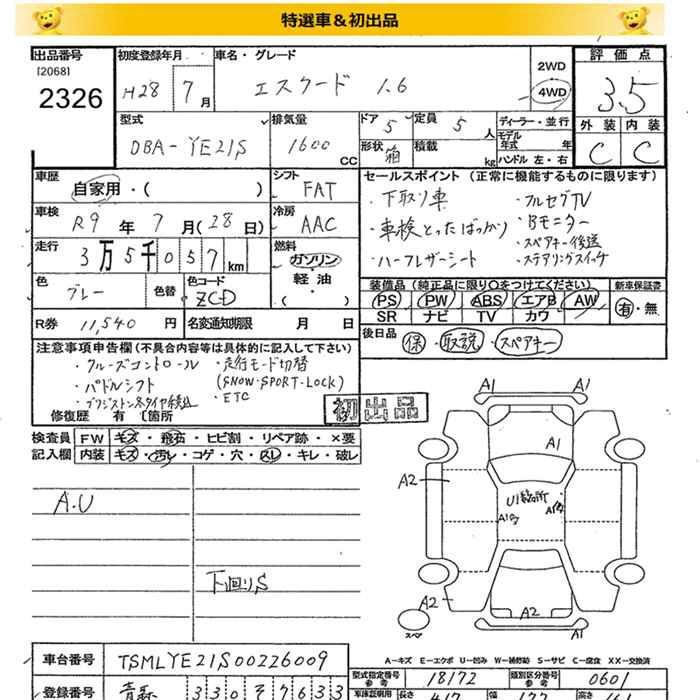 特選車＆初出品
出品番号
[2068]
2326
初度登録年月
H28 7月
車名・グレード
エスクード 1.6
2WD
4WD
評価点
3.5
外装 内装
C C
型式
DBA-YE21S
排気量
1600 CC
ドア 5
定員 5 人
形状 箱
積載 kg
ディーラー・並行
モデル年式 年
ハンドル 左・右
車歴
自家用・( )
シフト
FAT
車検
R9年 7月(28日)
冷房
AAC
走行
3万5千057km
燃料
ガソリン
軽油
( )
色
グレー
色替
色コード
ZCD
R券 11,540 円
名変通知期限 月 日
セールスポイント (正常に機能するものに限ります)
・下取り車
・車検とったばっかり
・ハーフレザーシート
・フルセグTV
・Bモニター
・スペアキー後送
・ステアリングスイッチ
装備品(純正品に限り○をつけてください)
PS PW ABS エアB AW
SR ナビ TV カワ
新車保証書
有・無
後日品
保・取説・スペアキー
注意事項申告欄(不具合内容等は具体的に記入して下さい)
・クルーズコントロール
・パドルシフト
・走行モード切替
(SNOW・SPORT・LOCK)
・ETC
修復歴 有 〔箇所
初出品
検査員記入欄
FW キズ・飛石・ヒビ割・リペア跡・×要
内装 キズ・汚レ・コゲ・穴・スレ・キレ・破レ
A.U
下回りS
A1 A1
A1
A2
U1箇所
A1
A1
A2
A2
A1
スペア
A－キズ E－エクボ U－凹み W－補修跡 S－サビ C－腐食 XX－交換済
車台番号 TSMLYE21S00226009
登録番号 青森 330
型式指定番号 参考 18172
類別区分番号 参考 0601
長さ 幅 高さ